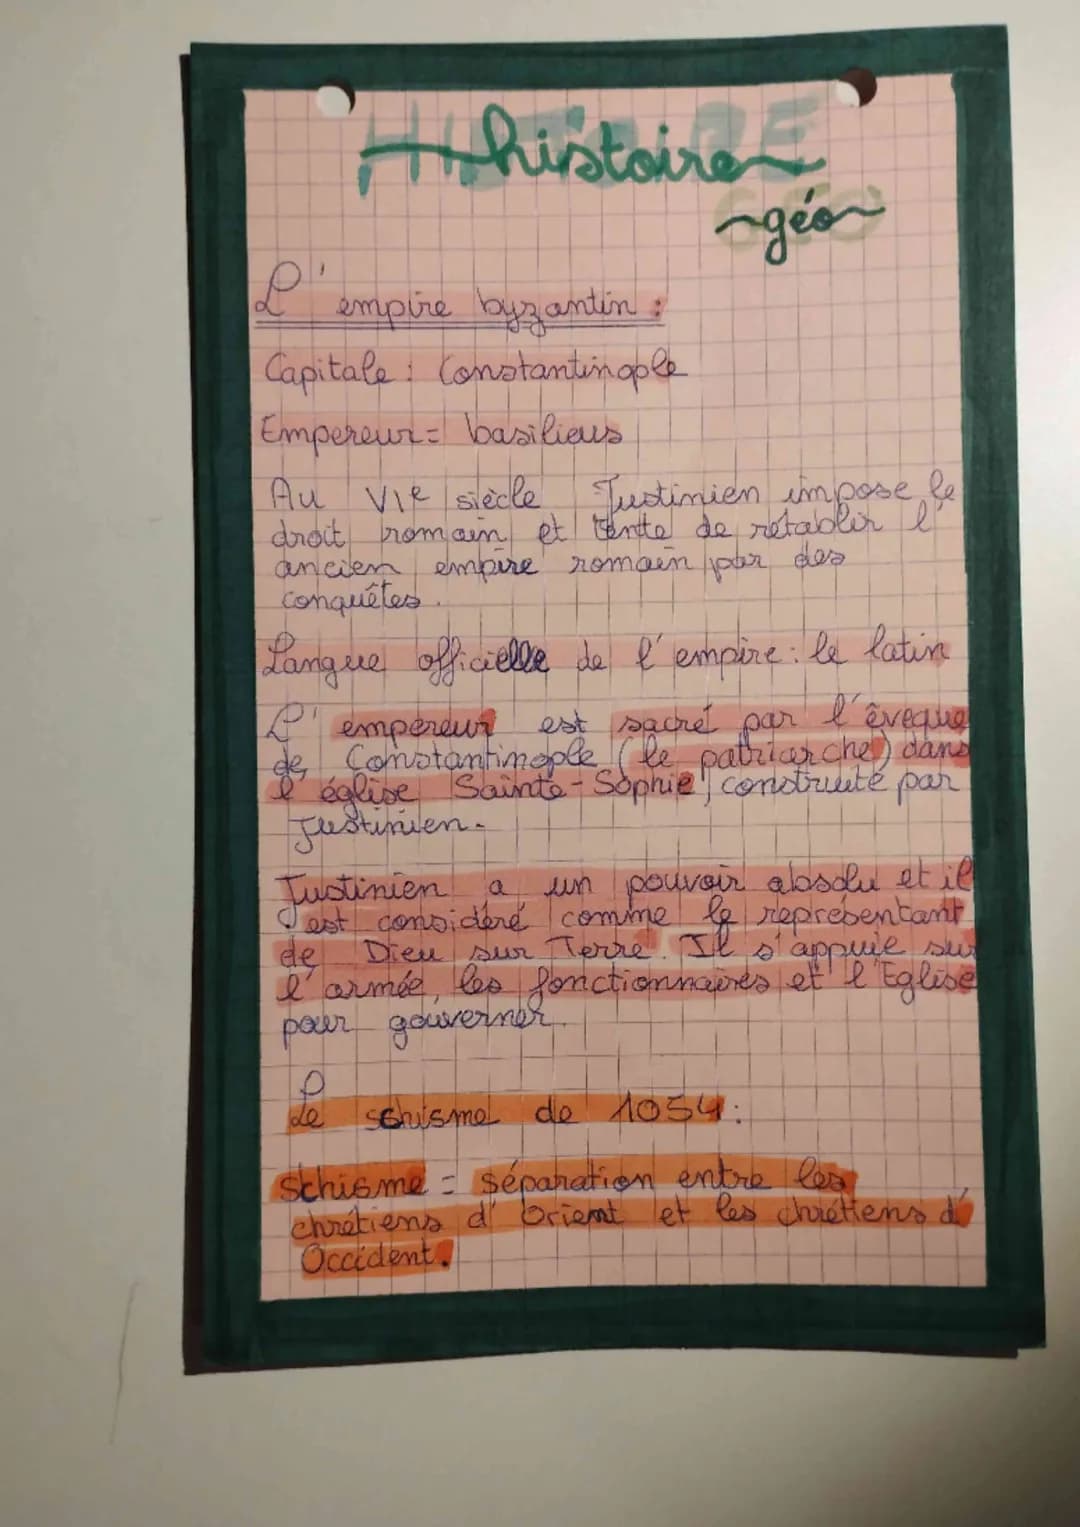 HISTOIRE
histoire
GÉO
~géo~
L'empire byzantin :
Capitale : Constantinople
Empereur = basilieus
Au VIe siècle Justinien impose le
droit romain et tente de rétablir l'
ancien empire romain par des
conquêtes.
Langue officielle de l'empire : le latin
L'empereur est sacré par l'êveque
de Constantinople (le patriarche) dans
l'église Sainte-Sophie, construite par
Justinien.
Justinien a un pouvoir absolu et il
est considéré comme le représentant
de Dieu sur Terre. Il s'appuie sur
l'armée, les fonctionnaires et l'Eglise
pour gouverner.
Le schisme de 1054 :
Schisme = séparation entre les
chrétiens d'Orient et les chrétiens d'
Occident.